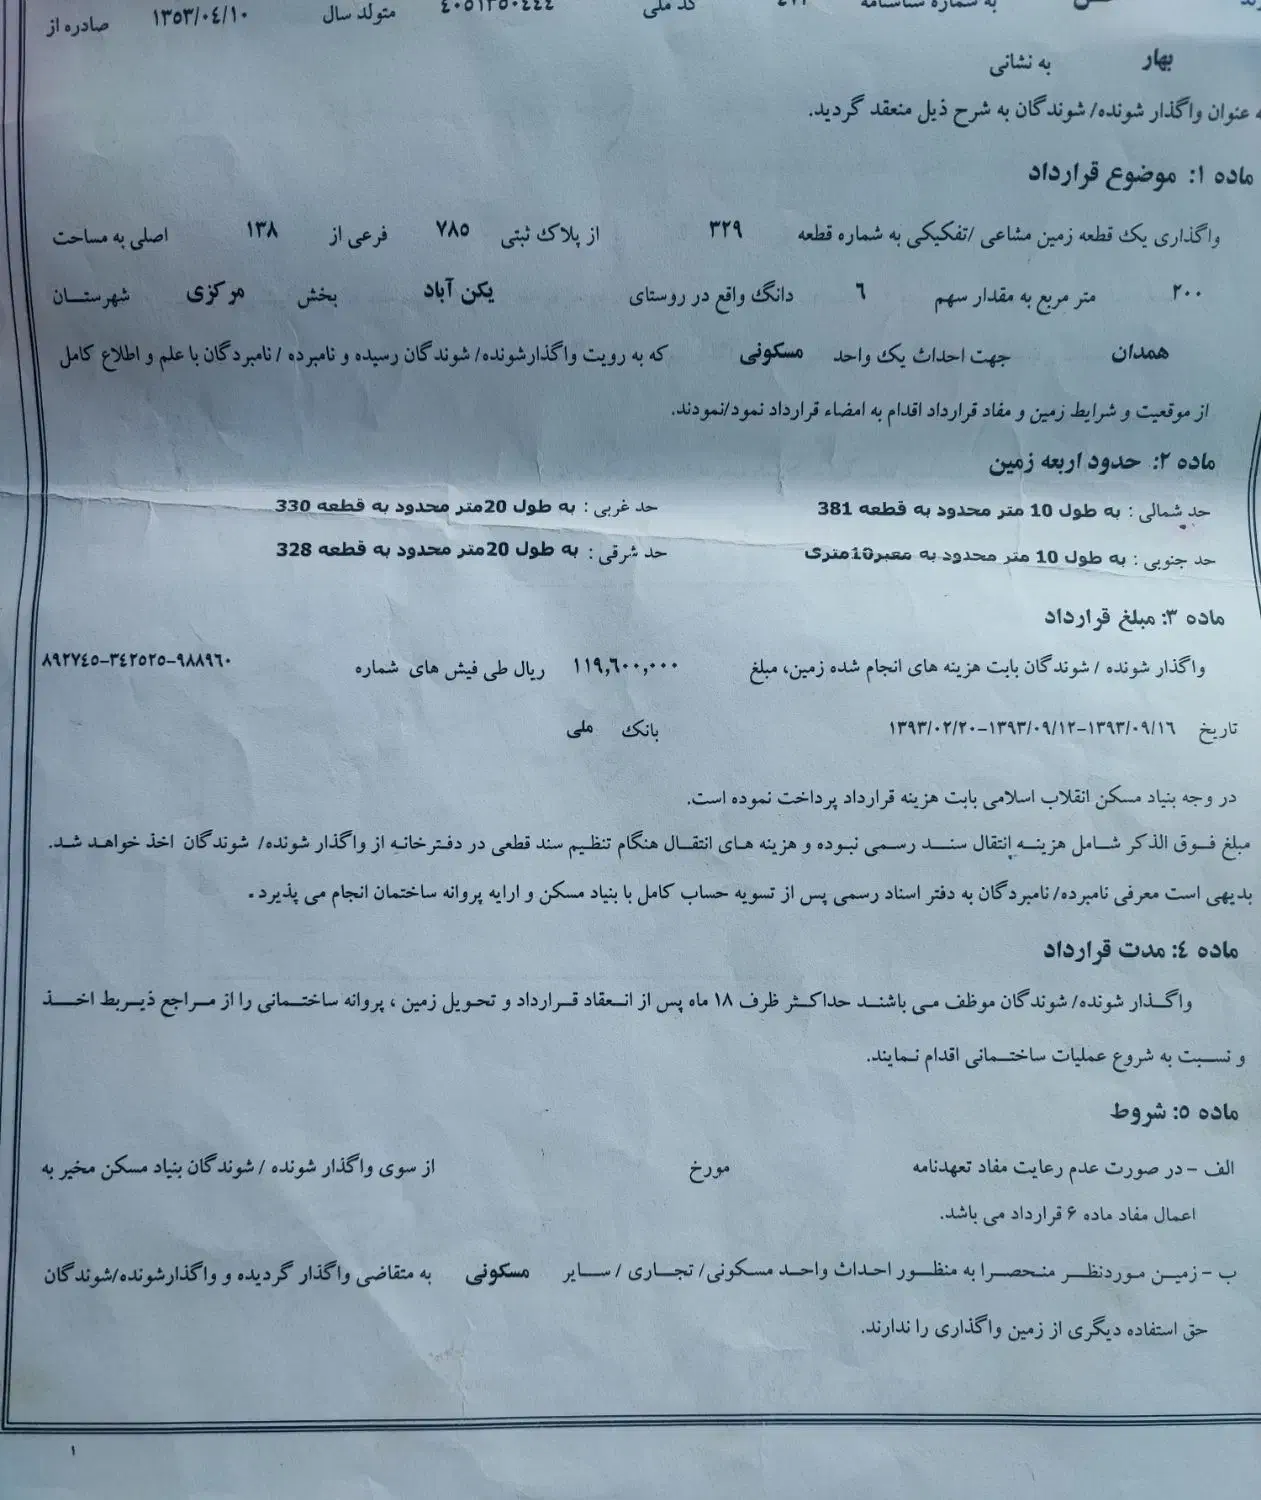 به شماره شناسنامه کد ملی ٤٠٥١٣٥٠٤٤٤ متولد سال ١٣٥٣/٠٤/١٠ صادره از
بهار به نشانی
عنوان واگذار شونده/ شوندگان به شرح ذیل منعقد گردید.
ماده ١: موضوع قرارداد
واگذاری یک قطعه زمین مشاعی /تفکیکی به شماره قطعه ٣٢٩ از پلاک ثبتی ٧٨٥ فرعی از ١٣٨ اصلی به مساحت
٢٠٠ متر مربع به مقدار سهم ٦ دانگ واقع در روستای یکن آباد بخش مرکزی شهرستان
همدان جهت احداث یک واحد مسکونی که به رویت واگذارشونده/ شوندگان رسیده و نامبرده / نامبردگان با علم و اطلاع کامل
از موقعیت و شرایط زمین و مفاد قرارداد اقدام به امضاء قرارداد نمود/نمودند.
ماده ٢: حدود اربعه زمین
حد شمالی : به طول 10 متر محدود به قطعه 381 حد غربی : به طول 20متر محدود به قطعه 330
حد جنوبی : به طول 10 متر محدود به معبر10متری حد شرقی : به طول 20متر محدود به قطعه 328
ماده ٣: مبلغ قرارداد
واگذار شونده / شوندگان بابت هزینه های انجام شده زمین، مبلغ ١١٩,٦٠٠,٠٠٠ ریال طی فیش های شماره ٩٨٨٩٦٠-٣٤٢٥٢٥-٨٩٢٧٤٥
تاریخ ١٣٩٣/٠٩/١٦-١٣٩٣/٠٩/١٢-١٣٩٣/٠٢/٢٠ بانک ملی
در وجه بنیاد مسکن انقلاب اسلامی بابت هزینه قرارداد پرداخت نموده است.
مبلغ فوق الذکر شامل هزینه انتقال سند رسمی نبوده و هزینه های انتقال هنگام تنظیم سند قطعی در دفترخانه از واگذار شونده/ شوندگان اخذ خواهد شد.
بدیهی است معرفی نامبرده/ نامبردگان به دفتر اسناد رسمی پس از تسویه حساب کامل با بنیاد مسکن و ارایه پروانه ساختمان انجام می پذیرد.
ماده ٤: مدت قرارداد
واگذار شونده/ شوندگان موظف می باشند حداکثر ظرف ١٨ ماه پس از انعقاد قرارداد و تحویل زمین ، پروانه ساختمانی را از مراجع ذیربط اخذ
و نسبت به شروع عملیات ساختمانی اقدام نمایند.
ماده ٥: شروط
الف - در صورت عدم رعایت مفاد تعهدنامه مورخ از سوی واگذار شونده / شوندگان بنیاد مسکن مخیر به
اعمال مفاد ماده ۶ قرارداد می باشد.
ب - زمین موردنظر منحصرا به منظور احداث واحد مسکونی/ تجاری / سایر مسکونی به متقاضی واگذار گردیده و واگذارشونده/شوندگان
حق استفاده دیگری از زمین واگذاری را ندارند.
١